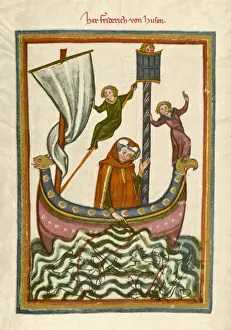 her friderich von husen.